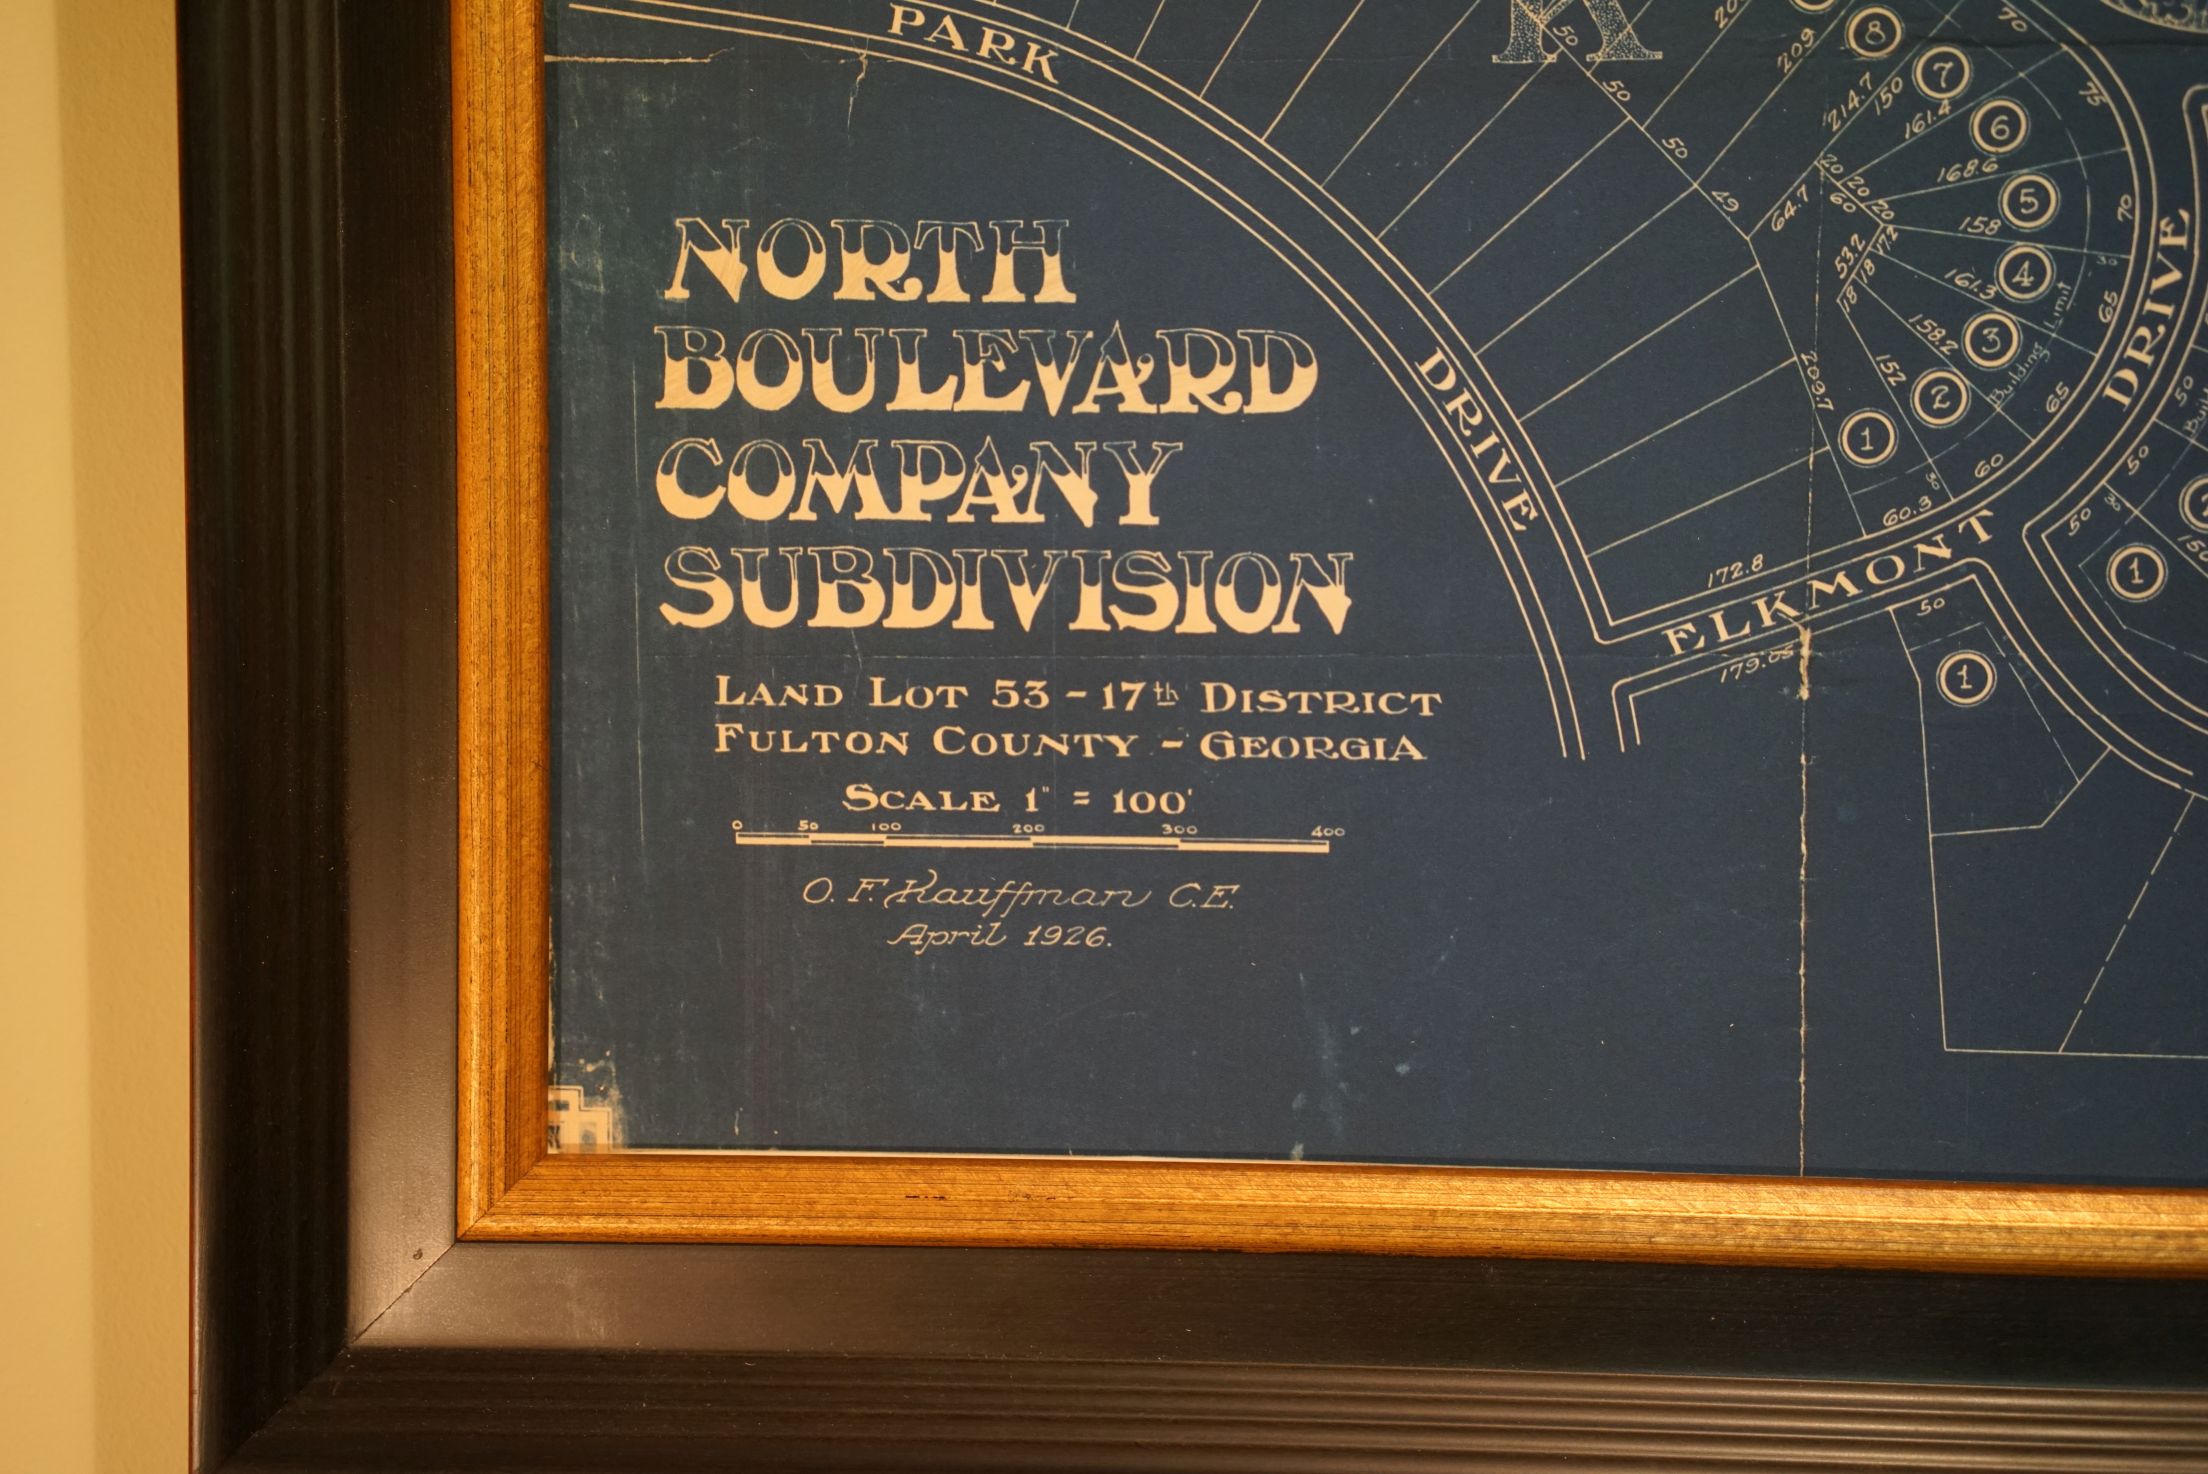 PARK
DRIVE
K
NORTH
BOULEVARD
COMPANY
SUBDIVISION
LAND LOT 53 - 17th DISTRICT
FULTON COUNTY - GEORGIA
SCALE 1" = 100'
0 50 100 200 300 400
O. F. Kauffman C.E.
April 1926.
ELKMONT
DRIVE
8
7
6
5
4
3
2
1
209
214.7
150
161.4
168.6
158
161.3
158.2
152
209.7
50
50
50
49
64.7
20
20
20
60
17.2
53.2
18
18
70
75
70
30
65
65
60
30
60.3
Building Limit
172.8
179.05
50
1
50
50
30
50
1